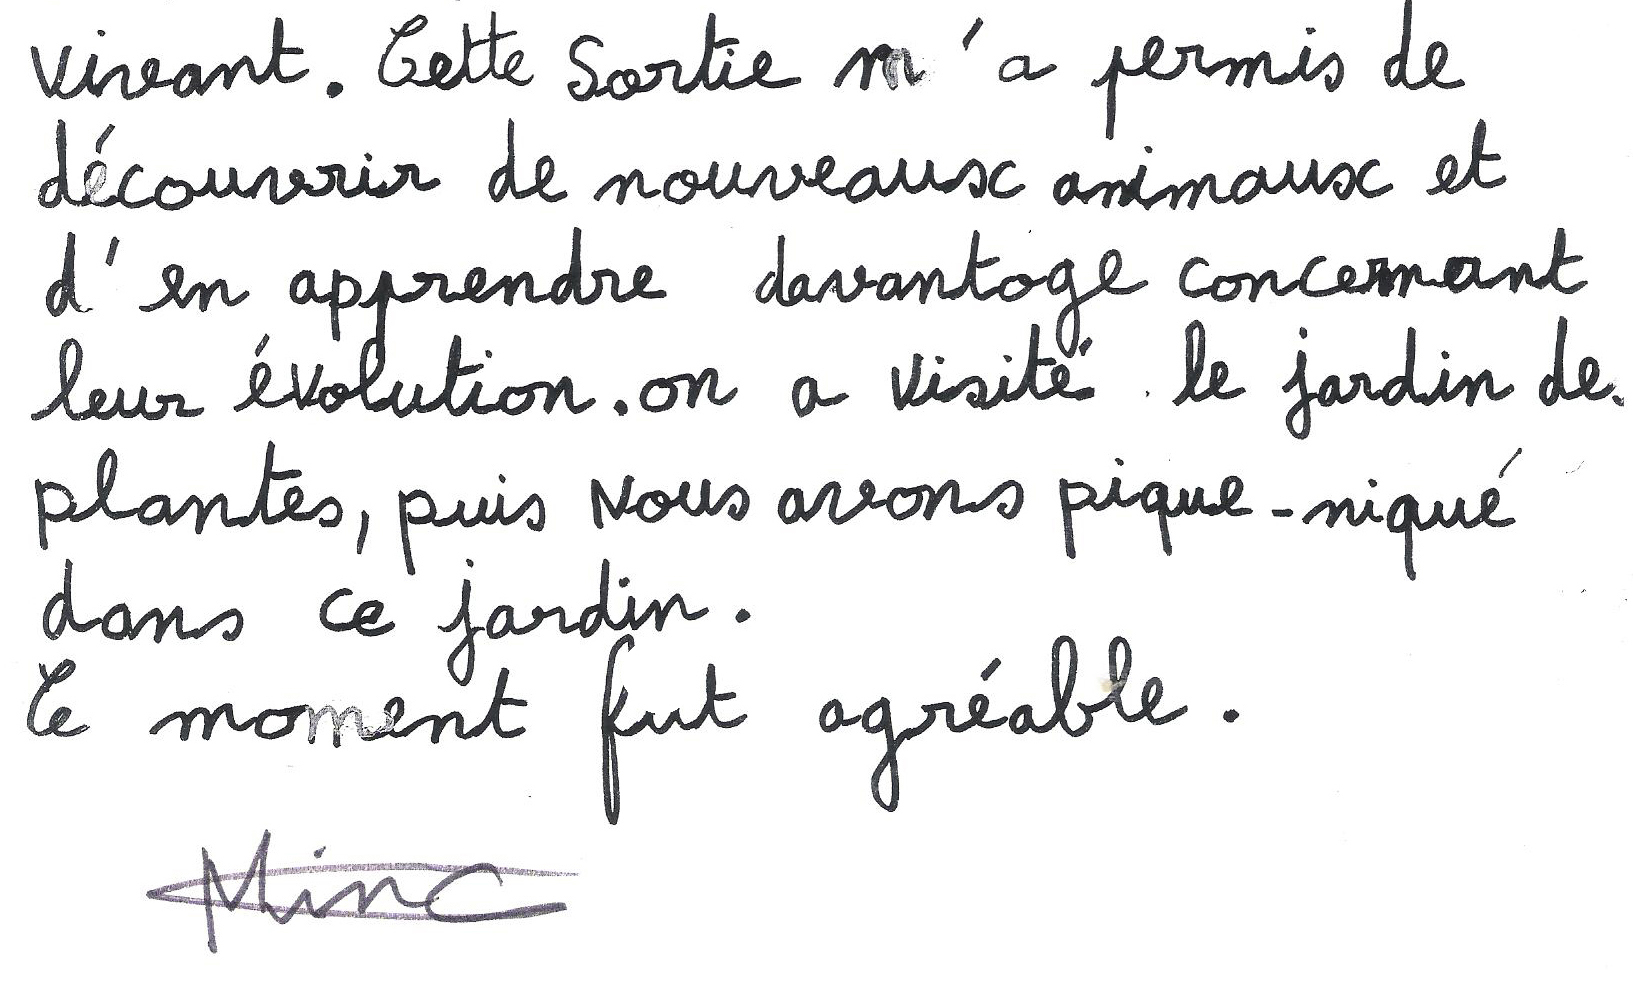 vivant. Cette Sortie m'a permis de
découvrir de nouveaux animaux et
d'en apprendre davantage concernant
leur évolution. on a visité le jardin de
plantes, puis Nous avons pique-niqué
dans ce jardin.
Ce moment fut agréable.
Minc